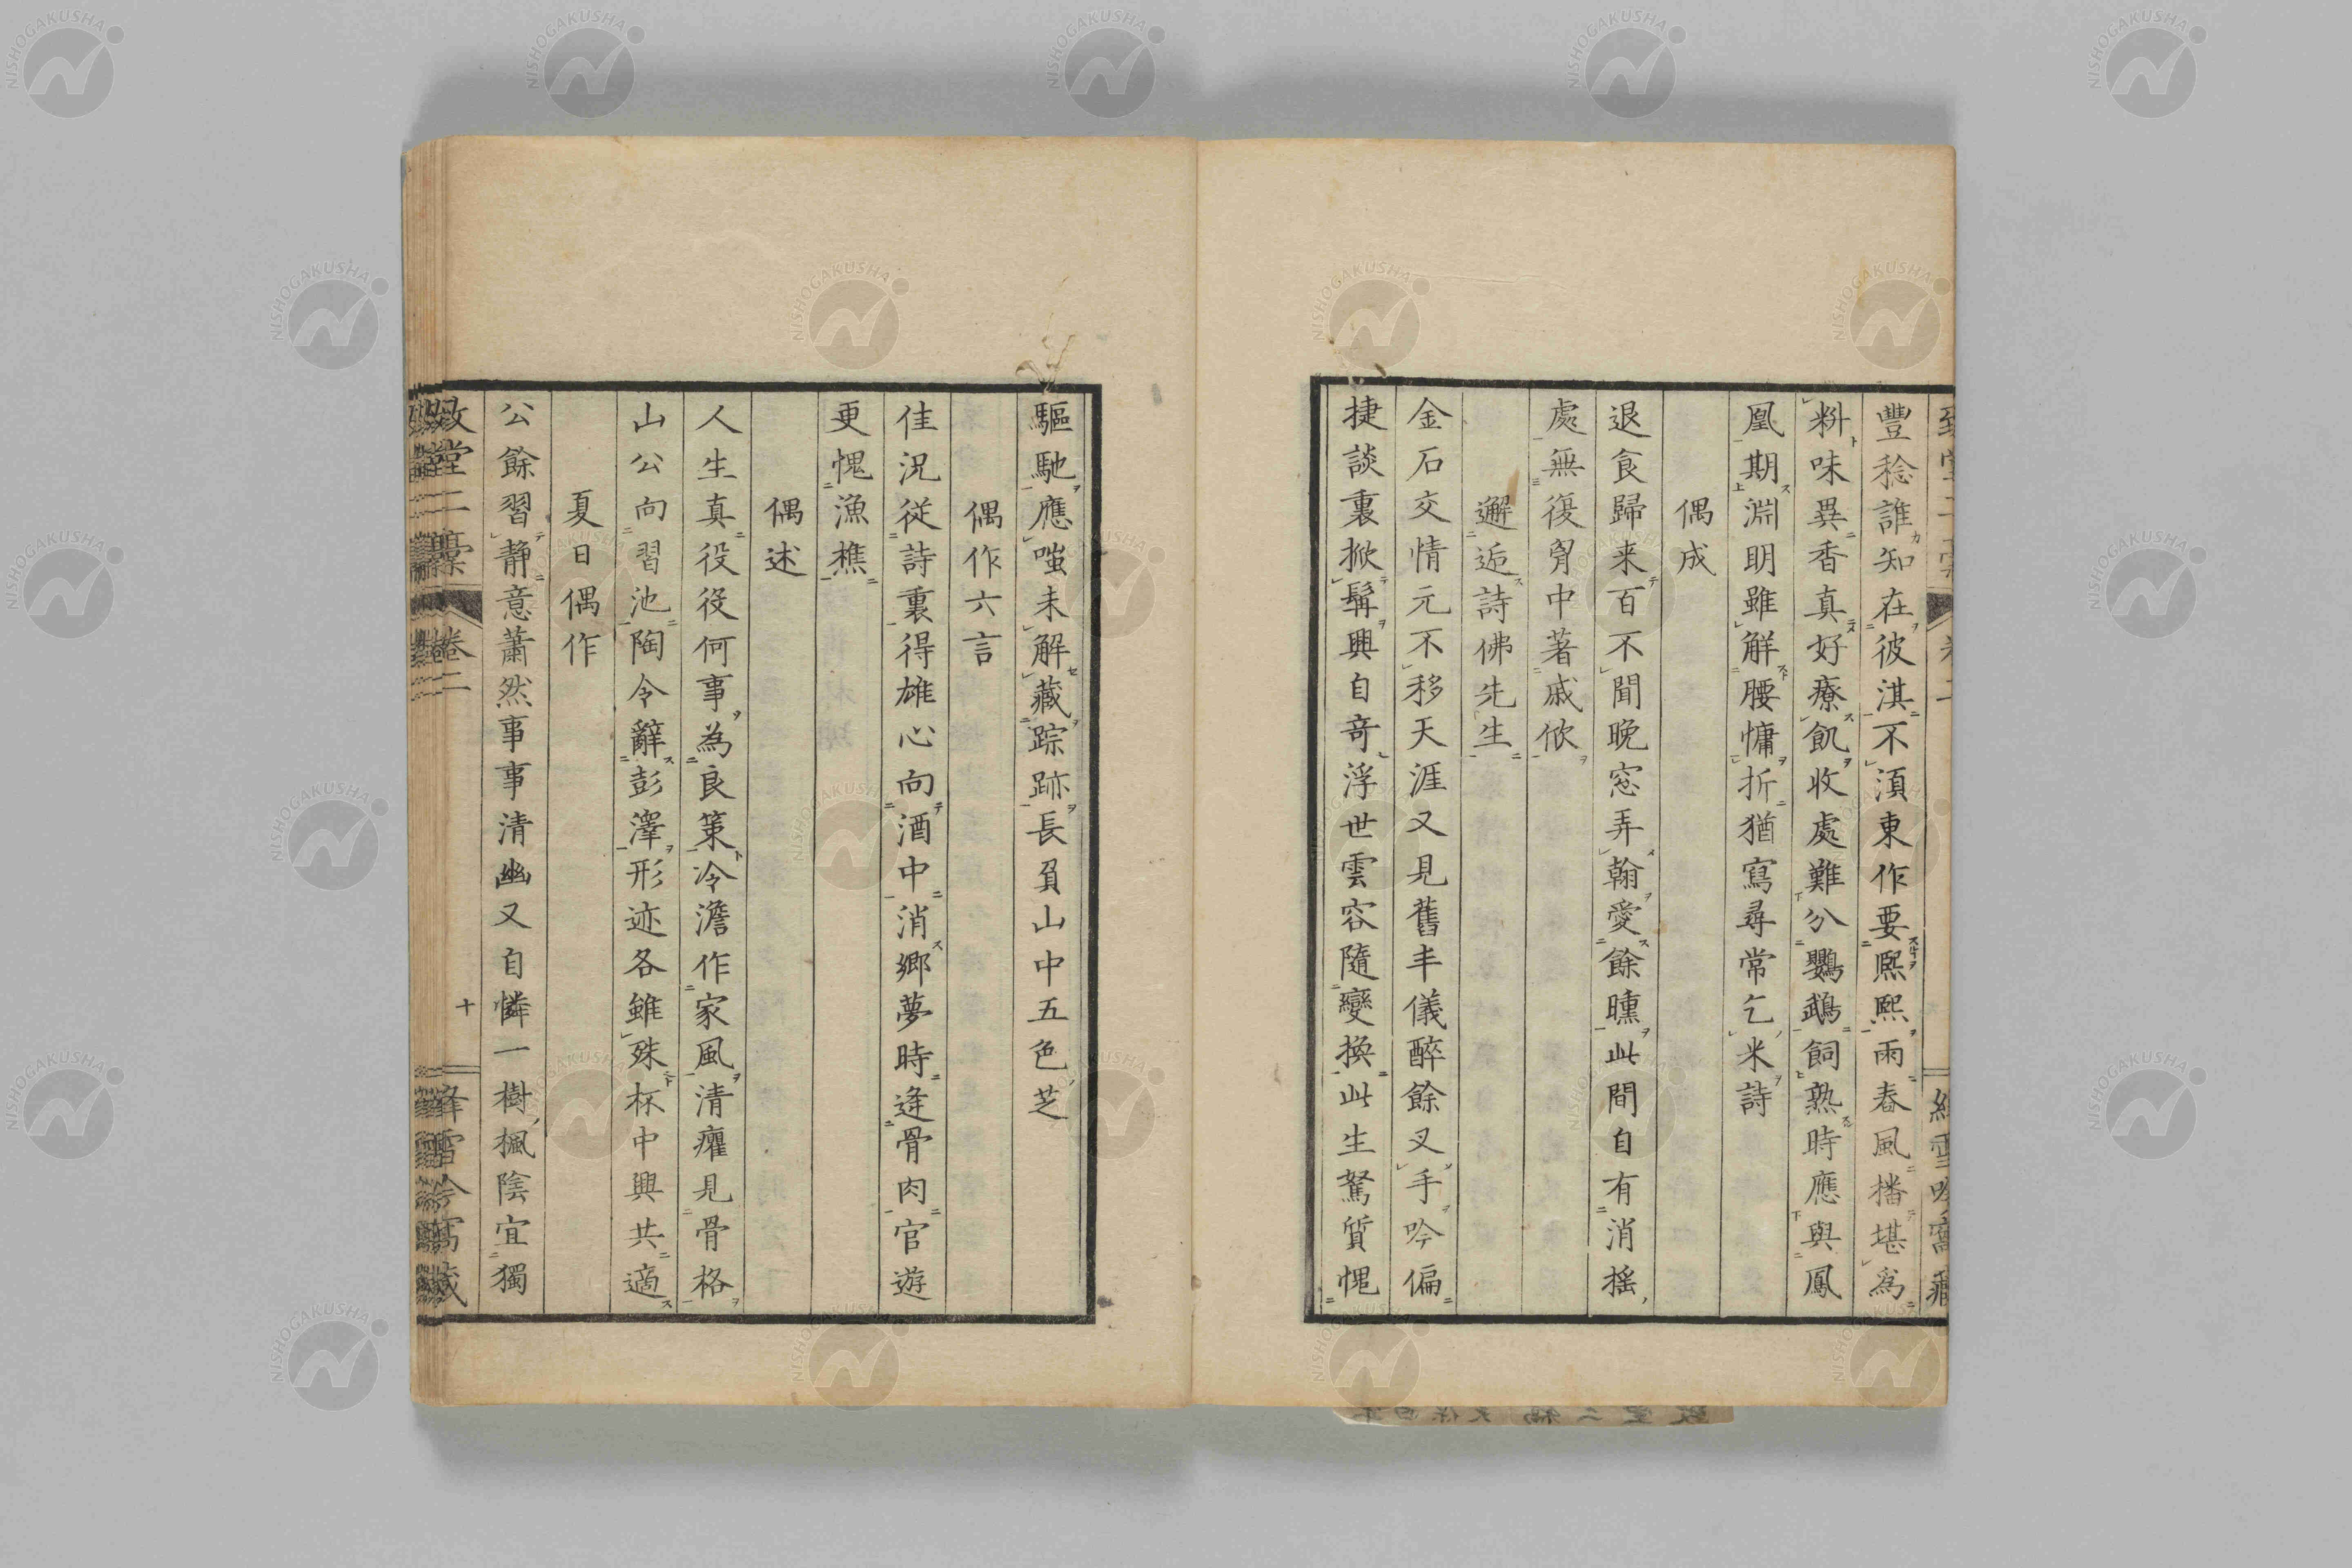 豐稔誰知在彼淇不湏東作要熈熈雨春風播堪爲
料味異香真好療飢收處難分鸚鵡飼熟時應與鳳
凰期淵明雖解腰慵折猶寫尋常乞米詩
偶成
退食歸来百不聞晩窓弄翰愛餘曛此間自有消揺
處無復胷中著戚忻
邂逅詩佛先生
金石交情元不移天涯又見舊丰儀醉餘叉手吟偏
捷談裏掀髯興自竒浮世雲容隨變換此生駑質愧
驅馳應嗤未解藏踪跡長負山中五色芝
偶作六言
佳況従詩裏得雄心向酒中消郷夢時逢骨肉官遊
更愧漁樵
偶述
人生真役役何事為良策冷澹作家風清癯見骨格
山公向習池陶令辭彭澤形迹各雖殊杯中興共適
夏日偶作
公餘習静意蕭然事事清幽又自憐一樹楓陰宜獨
致堂二稾 卷二 十 絳雪吟窩藏